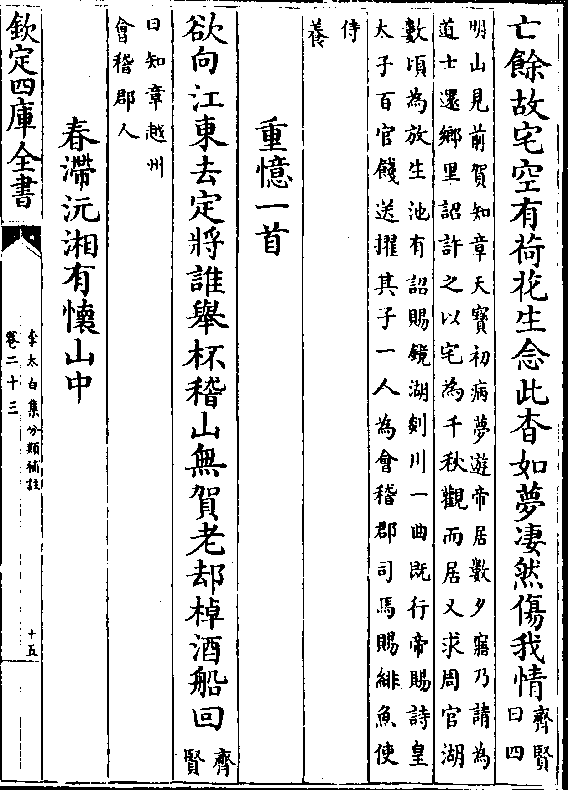 亡餘故宅空有荷花生念此杳如夢淒然傷我情齊賢曰四
明山見前賀知章天寳初病夢遊帝居數夕寤乃請為
道士還鄉里詔許之以宅為千秋觀而居又求周官湖
數頃為放生池有詔賜鏡湖剡川一曲既行帝賜詩皇
太子百官餞送擢其子一人為會稽郡司馬賜緋魚使
侍
養
重憶一首
欲向江東去定將誰舉杯稽山無賀老却棹酒船回齊賢
曰知章越州
會稽郡人
春滯沅湘有懷山中
欽定四庫全書
李太白集分類補註
卷二十三
十五